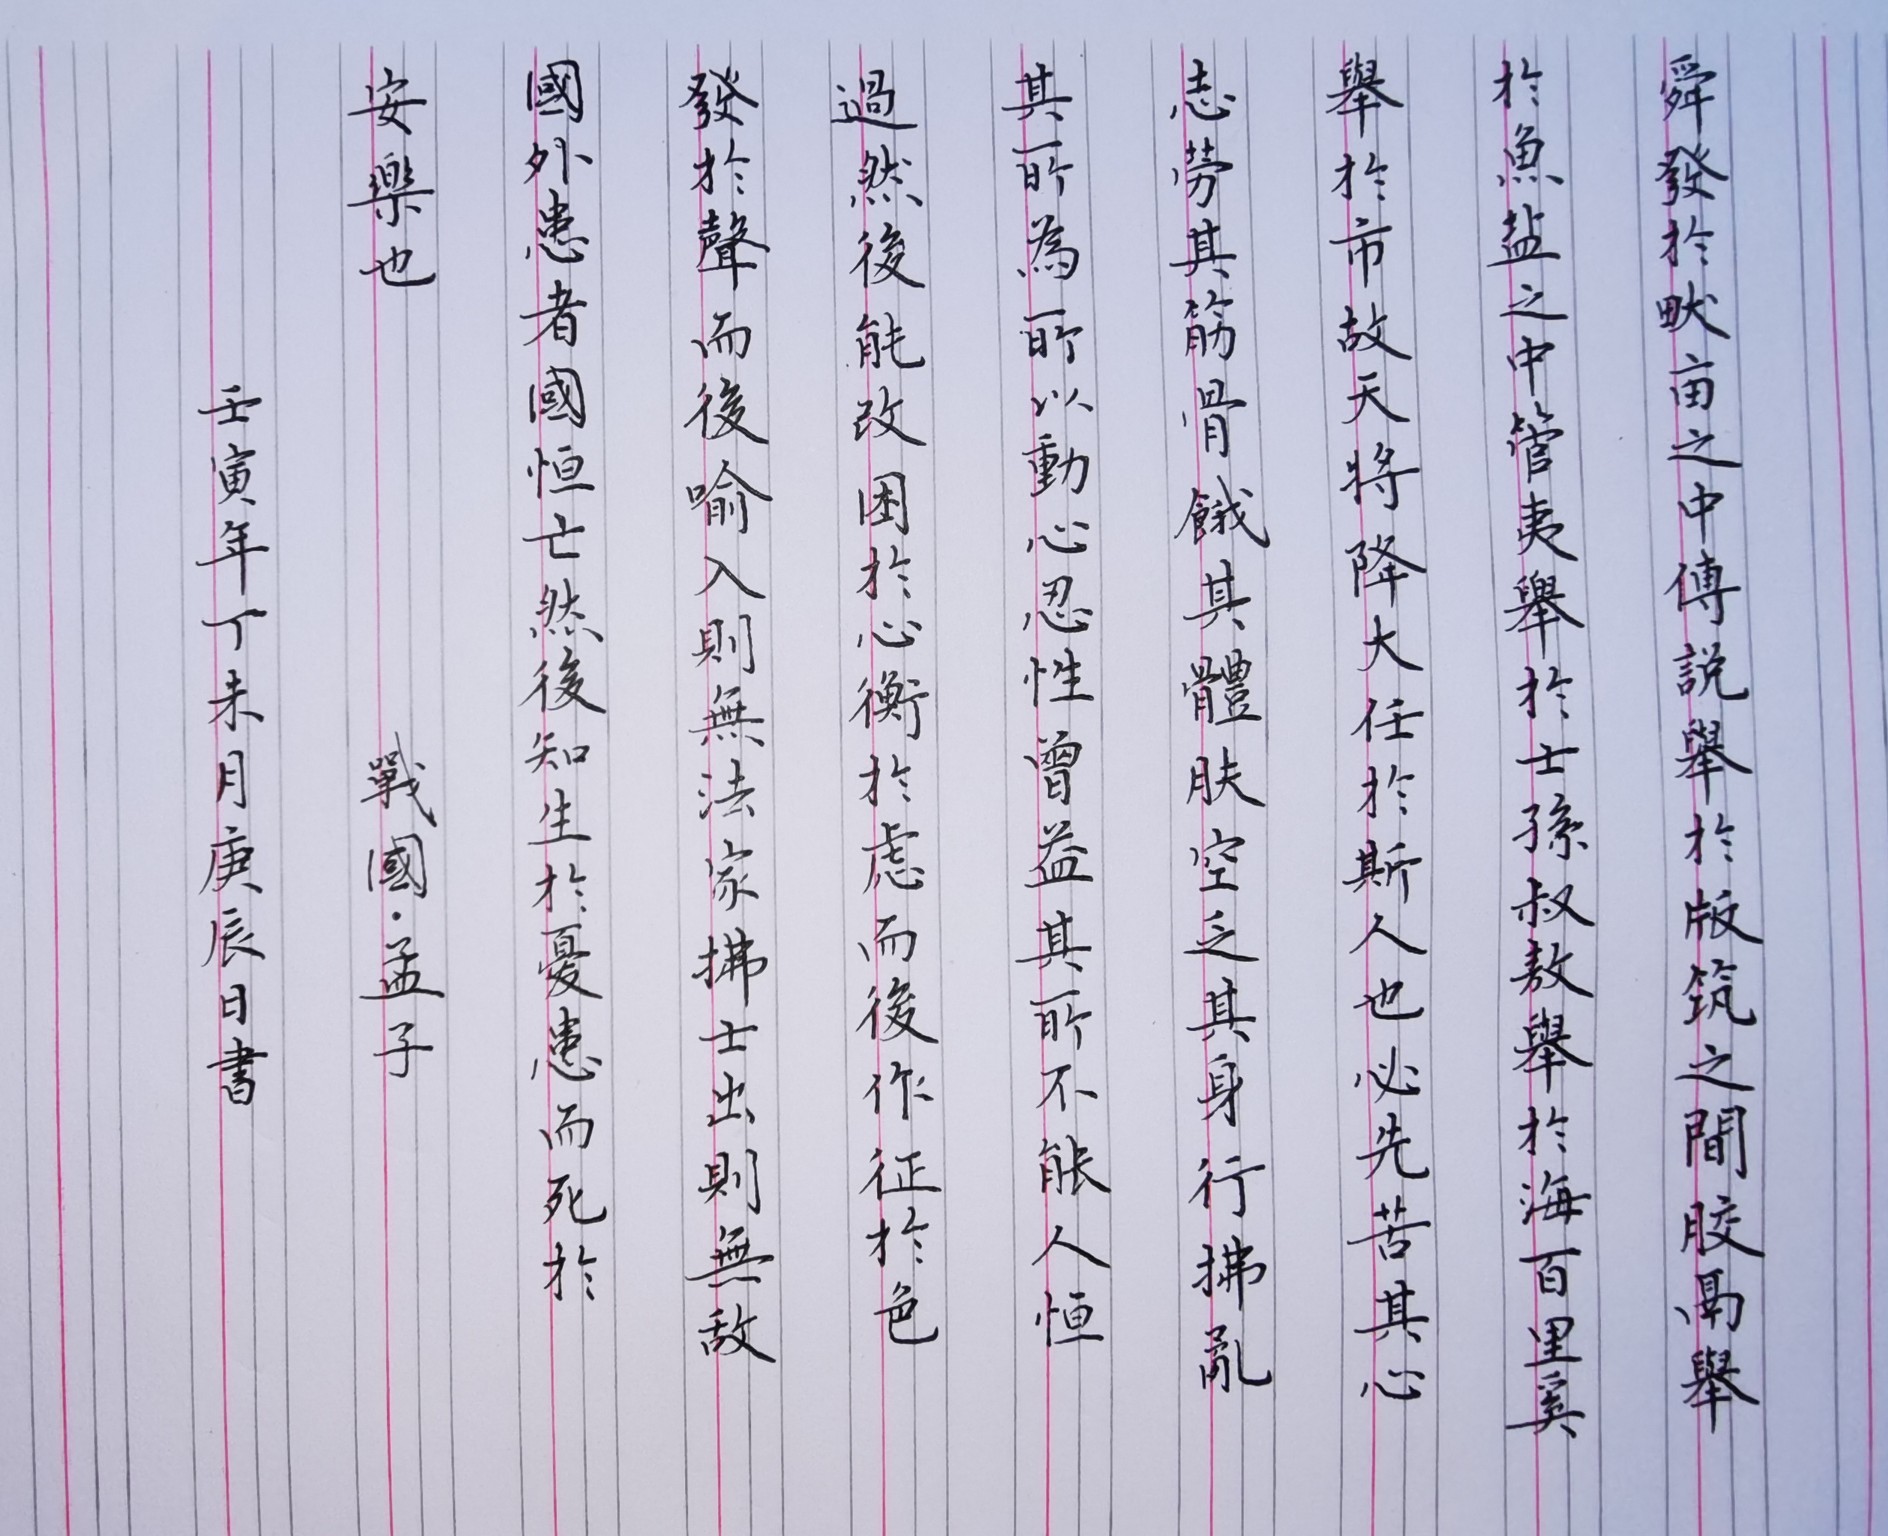 舜發於畎亩之中傅説舉於版筑之間胶鬲舉
於魚盐之中管夷舉於士孫叔敖舉於海百里奚
舉於市故天將降大任於斯人也必先苦其心
志劳其筋骨餓其體肤空乏其身行拂亂
其所為所以動心忍性曾益其所不能人恒
過然後能改困於心衡於虑而後作征於色
發於聲而後喻入則無法家拂士出則無敌
國外患者國恒亡然後知生於憂患而死於
安樂也
戰國·孟子
壬寅年丁未月庚辰日書